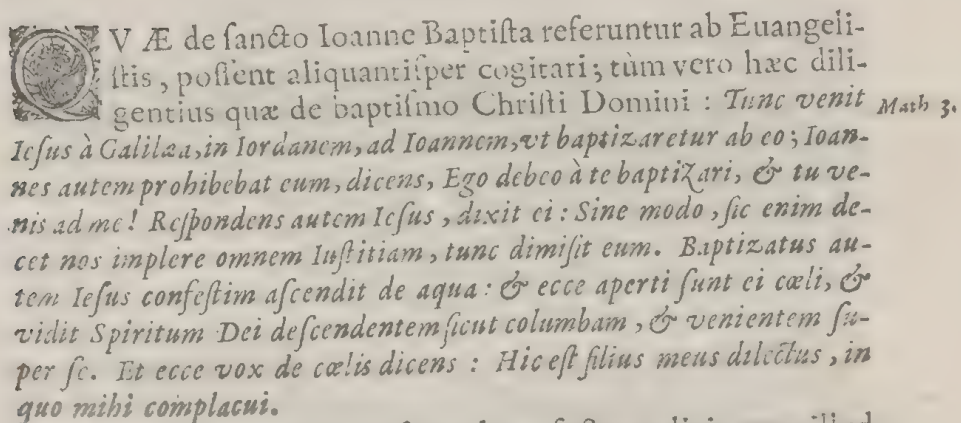 QVÆ de ſancto Ioanne Baptiſta referuntur ab Euangeli-
ſtis, poſſent aliquantiſper cogitari; tùm vero hæc dili-
gentius quæ de baptiſmo Chriſti Domini : Tunc venit Math 3.
Ieſus à Galilæa, in Iordanem, ad Ioannem, vt baptizaretur ab eo; Ioan-
nes autem prohibebat eum, dicens, Ego debeo à te baptizari, & tu ve-
nis ad me! Reſpondens autem Ieſus, dixit ei : Sine modo, ſic enim de-
cet nos implere omnem Iuſtitiam, tunc dimiſit eum. Baptizatus au-
tem Ieſus confeſtim aſcendit de aqua : & ecce aperti ſunt ei cœli, &
vidit Spiritum Dei deſcendentem ſicut columbam, & venientem ſu-
per ſe. Et ecce vox de cœlis dicens : Hic eſt filius meus dilectus, in
quo mihi complacui.